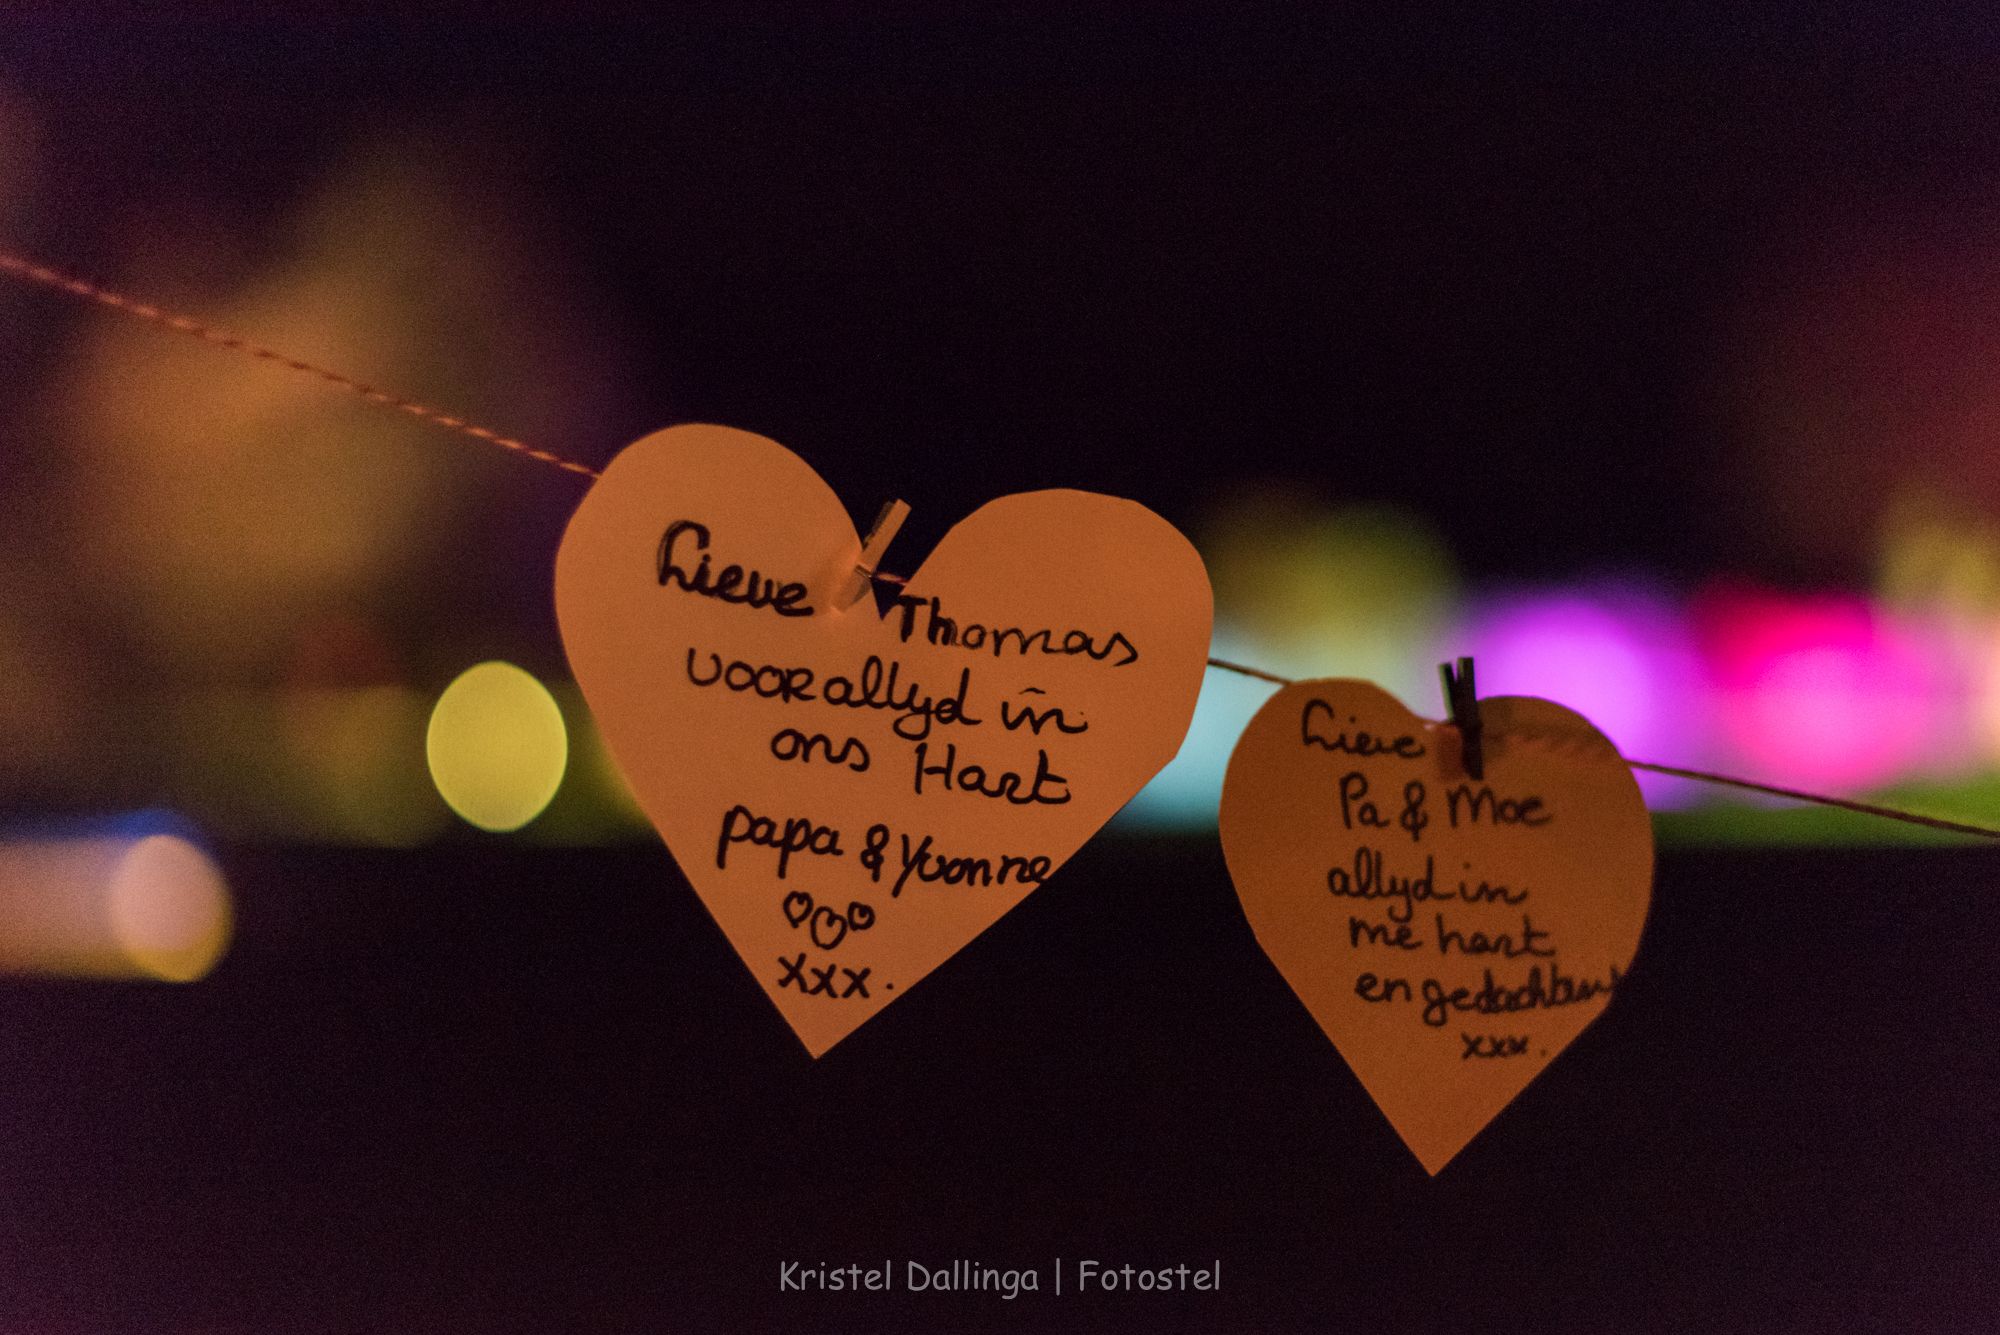 Lieve Thomas
voor allyd in
ons Hart
papa & Yvonne
xxx.
Lieve
Pa & Moe
allyd in
me hart
en gedachten
xxx.
Kristel Dallinga | Fotostel